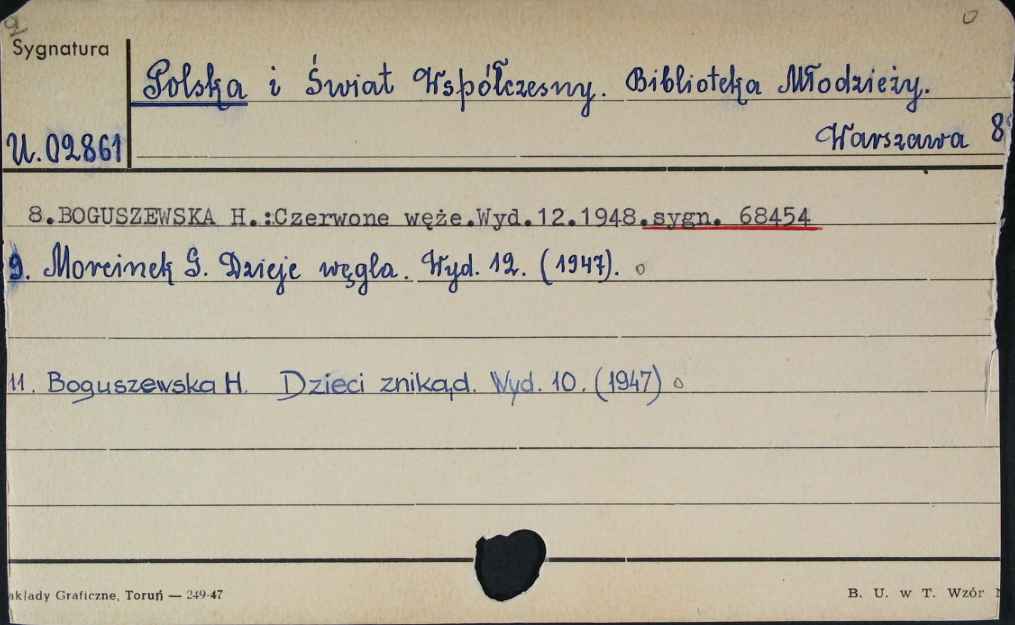 Sygnatura
Polska i Świat Współczesny. Biblioteka Młodzieży.
U.02861
Warszawa 8°
8.BOGUSZEWSKA H.:Czerwone węże.Wyd.12.1948.sygn. 68454
9. Morcinek G. Dzieje węgla. Wyd. 12. (1947). o
11. Boguszewska H. Dzieci znikąd. Wyd. 10. (1947) o
akłady Graficzne, Toruń — 249-47
B. U. w T. Wzór